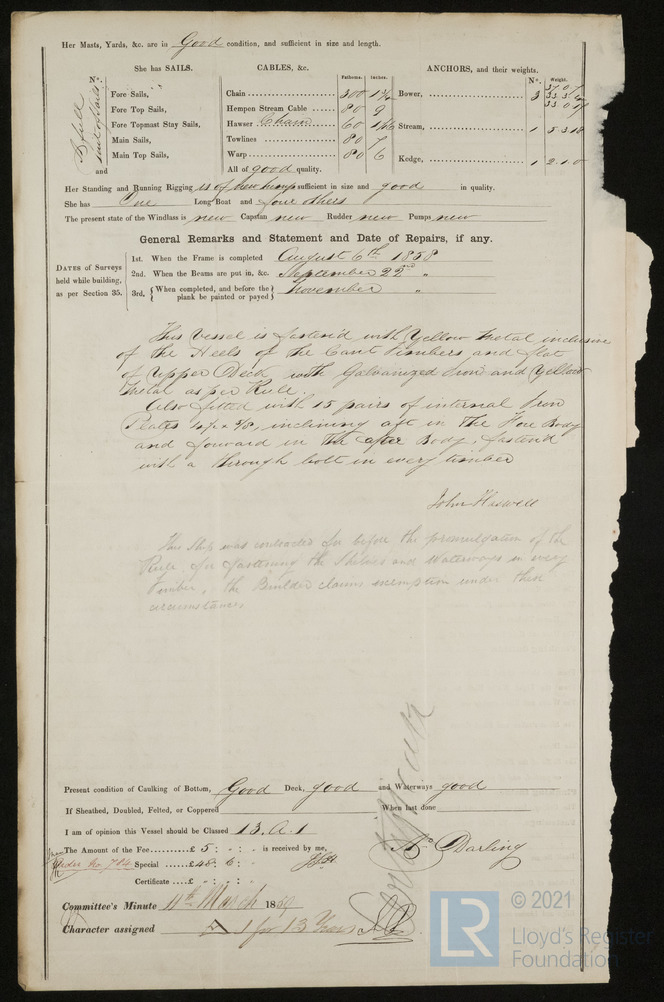 Her Masts, Yards, &c. are in Good condition, and sufficient in size and length.
She has SAILS.
N°.
Fore Sails,
Fore Top Sails,
Fore Topmast Stay Sails,
Main Sails,
Main Top Sails,
and
CABLES, &c.
Fathoms. Inches.
Chain 300
Hempen Stream Cable 80 9
Hawser Chain 60
Towlines 80 7
Warp 80 6
All of good quality.
ANCHORS, and their weights.
N°. Weight.
Bower, 3
Stream, 1 5.3.18
Kedge, 1 2.1.0
Her Standing and Running Rigging is of new hemp sufficient in size and good in quality.
She has One Long Boat and four others
The present state of the Windlass is new Capstan new Rudder new Pumps new
General Remarks and Statement and Date of Repairs, if any.
DATES of Surveys
held while building,
as per Section 35.
1st. When the Frame is completed August 6th 1858
2nd. When the Beams are put in, &c. September 22nd "
3rd, { When completed, and before the plank be painted or payed } November "
This Vessel is fastened with Yellow Metal inclusive
of the Heels of the Cant Timbers and flat
of Upper Deck with Galvanized Iron and Yellow
Metal as per Rule.
Also fitted with 15 pairs of internal Iron
Plates inclining aft in The Fore Body
and forward in the after Body, fastend
with a through bolt in every timber
John Haswell
This Ship was contracted for before the promulgation of the
Rule, for fastening the Shelves and Waterways in every
timber, the Builder claims exemption under these
circumstances
Present condition of Caulking of Bottom, Good Deck, good and Waterways good
If Sheathed, Doubled, Felted, or Coppered When last done
I am of opinion this Vessel should be Classed 13. A. 1
The Amount of the Fee £ 5 : - : - is received by me,
Under No 784 Special £ 48 : 6 : -
Certificate £ - : - : -
A. Darling
Committee's Minute 11th March 1859
Character assigned A 1 for 13 Years
© 2021
LR
Lloyd's Register
Foundation